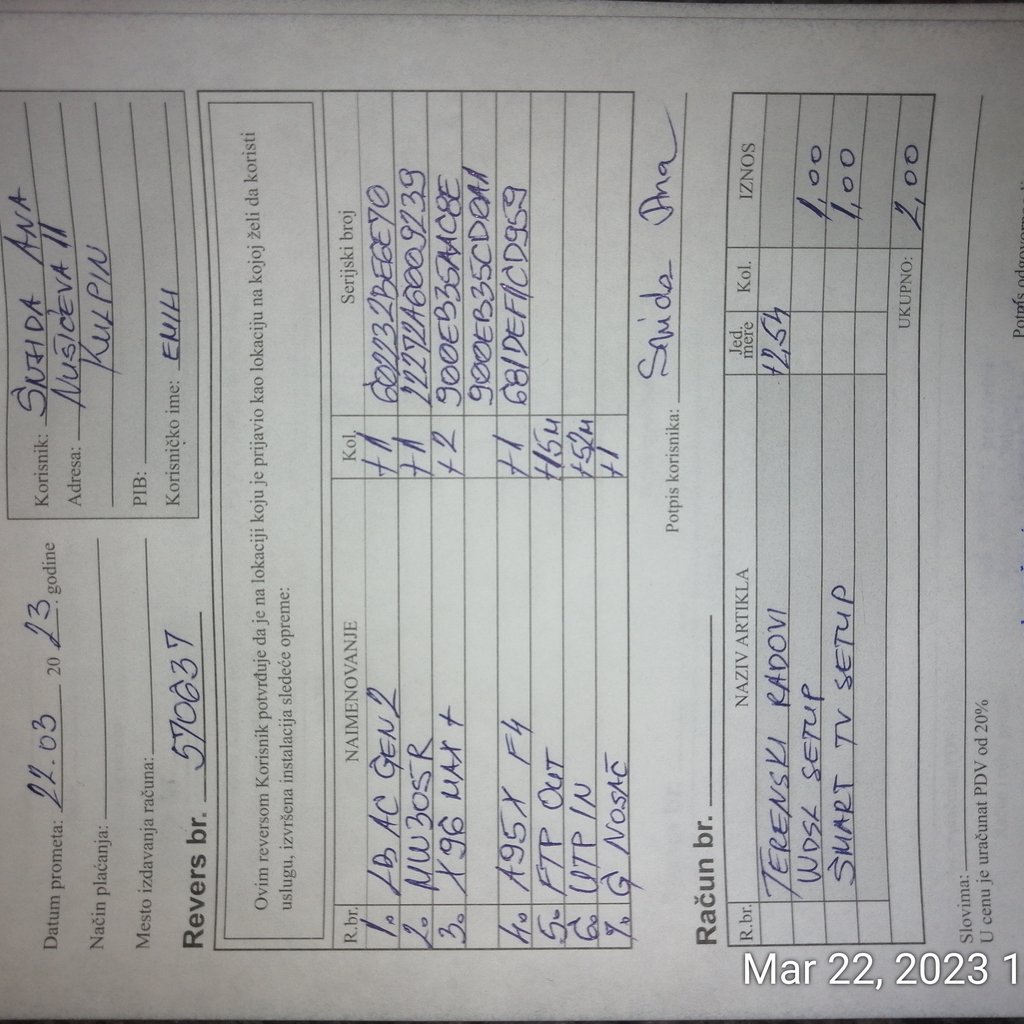 Datum prometa: 22.03 2023. godine
Način plaćanja:
Mesto izdavanja računa:
Korisnik: ŠNJIDA ANA
Adresa: NUŠIĆEVA 11
KULPIN
PIB:
Korisničko ime: EMILI
Revers br. 570637
Ovim reversom Korisnik potvrđuje da je na lokaciji koju je prijavio kao lokaciju na kojoj želi da koristi
uslugu, izvršena instalacija sledeće opreme:
R.br. NAIMENOVANJE Kol. Serijski broj
1. LB AC GEN2 +1
2. MW305R +1 22272A6009239
3. X96 MAX + +2 900EB35AAC8E
900EB35CD0A1
4. A95X F4 +1 681DEF1CD959
5. FTP OUT +15M
6. UTP IN +5,2M
7. G NOSAČ +1
Potpis korisnika: Ana
Račun br.
R.br. NAZIV ARTIKLA Jed. mere Kol. IZNOS
TERENSKI RADOVI +2,5H
WDSL SETUP 1,00
SMART TV SETUP 1,00
UKUPNO: 2,00
Slovima:
U cenu je uračunat PDV od 20%
Potpis odgovorn
Mar 22, 2023 1